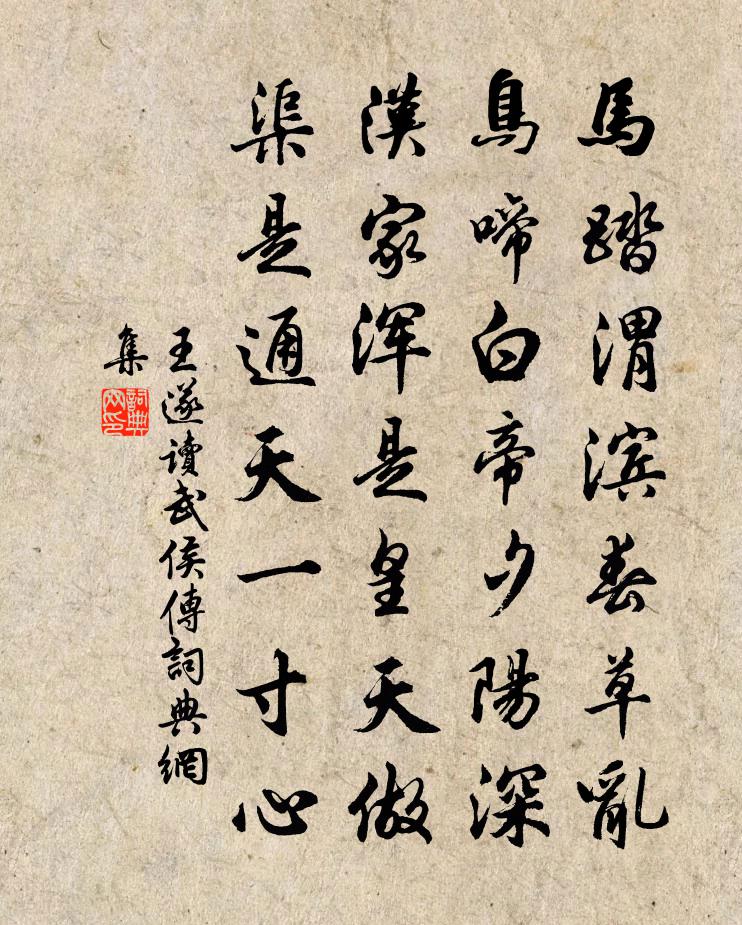 馬踏渭濱春草亂
鳥啼白帝夕陽深
漢家渾是皇天做
渠是通天一寸心
王遂讀武侯傳詞典網
集
詞典
网印